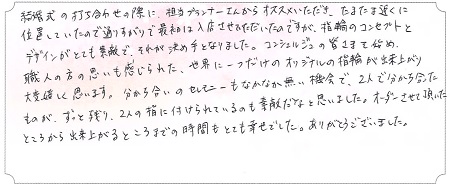 結婚式の打ち合わせの際に、担当プランナーさんからオススメいただき、たまたま近くに
位置していたので通りすがりで最初は入店させていただいたのですが、指輪のコンセプトと
デザインがとても素敵で、それが決め手となりました。コンシェルジュの皆さまを始め、
職人の方の思いも感じられた、世界に一つだけのオリジナルの指輪が出来上がり
大変嬉しく思います。分かち合いのセレモニーもなかなか無い機会で、2人で分かち合った
ものが、ずっと残り、2人の指に付けられているのも素敵だなと思いました。オーダーさせて頂いた
ところから出来上がるところまでの時間もとても幸せでした。ありがとうございました。